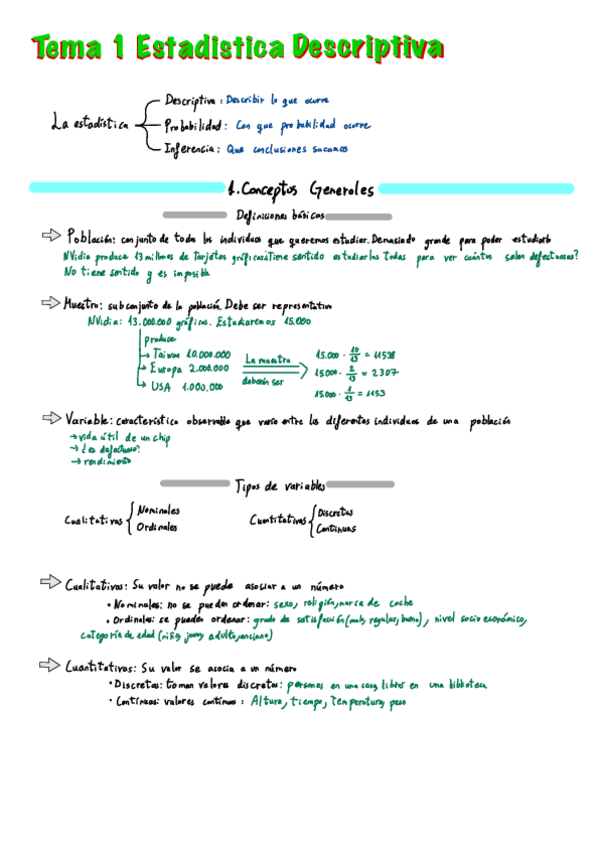 Tema 1 Estadistica Descriptiva
La estadística
Descriptiva: Describir lo que ocurre
Probabilidad: Con que probabilidad ocurre
Inferencia: Que conclusiones sacamos
1. Conceptos Generales
Definiciones básicas
Población: conjunto de todos los individuos que queremos estudiar. Demasiado grande para poder estudiarla
NVidia produce 13 millones de tarjetas gráficas ¿Tiene sentido estudiarlas todas para ver cuántas salen defectuosas?
No tiene sentido y es imposible
Muestra: subconjunto de la población. Debe ser representativa
NVidia: 13.000.000 gráficas. Estudiaremos 15.000
produce
Taiwan 10.000.000
Europa 2.000.000
USA 1.000.000
La muestra
debería ser
15.000 · 10/13 = 11538
15.000 · 2/13 = 2307
15.000 · 1/13 = 1153
Variable: característica observable que varía entre los diferentes individuos de una población
→ vida útil de un chip
→ ¿es defectuoso?
→ rendimiento
Tipos de variables
Cualitativas { Nominales
Ordinales
Cuantitativas { Discretas
Continuas
Cualitativas: Su valor no se puede asociar a un número
• Nominales: no se pueden ordenar: sexo, religión, marca de coche
• Ordinales: se pueden ordenar: grado de satisfacción (malo, regular, bueno), nivel socioeconómico,
categoría de edad (niño, joven, adulto, anciano)
Cuantitativas: Su valor se asocia a un número
• Discretas: toman valores discretos: personas en una casa, libros en una biblioteca
• Continuas: valores continuos: Altura, tiempo, Temperatura, peso